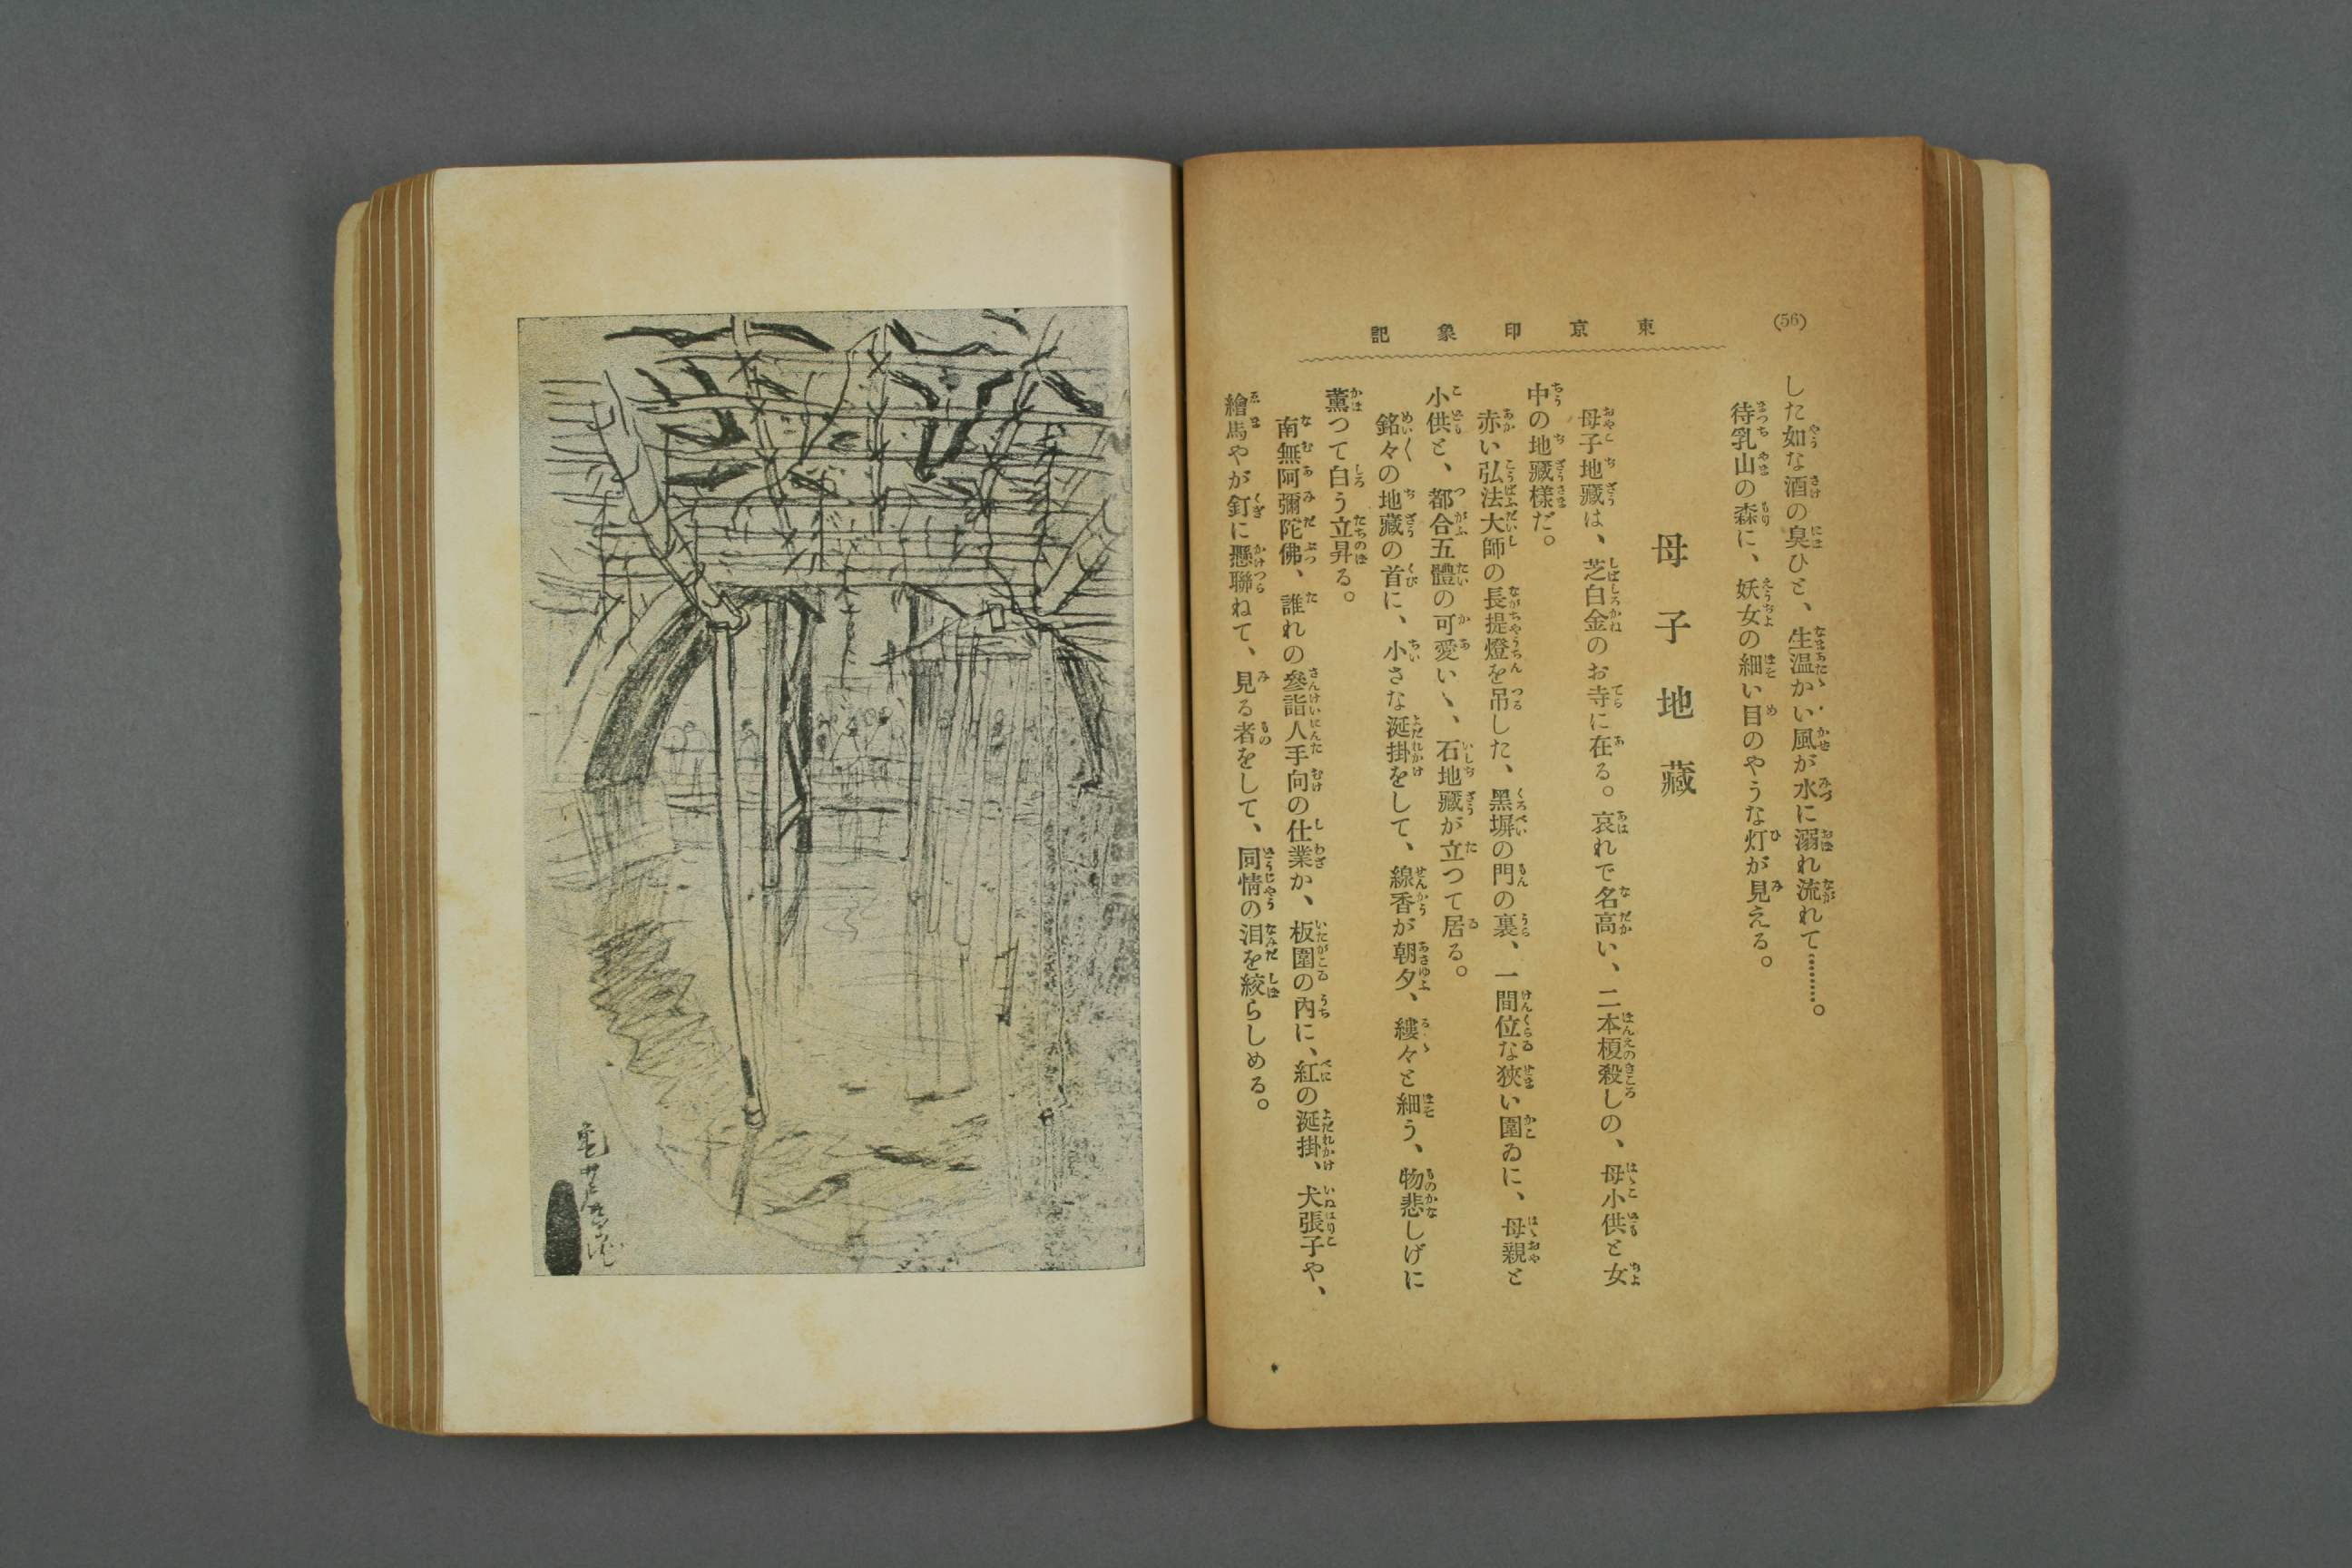 (56)
東京印象記
した如な酒の臭ひと、生温かい風が水に溺れ流れて………。
待乳山の森に、妖女の細い目のやうな灯が見える。
母子地藏
母子地藏は、芝白金のお寺に在る。哀れで名高い、二本榎殺しの、母小供と女
中の地藏樣だ。
赤い弘法大師の長提燈を吊した、黑塀の門の裏、一間位な狹い圍ゐに、母親と
小供と、都合五體の可愛いゝ、石地藏が立つて居る。
銘々の地藏の首に、小さな涎掛をして、線香が朝夕、縷々と細う、物悲しげに
薰つて白う立昇る。
南無阿彌陀佛、誰れの參詣人手向の仕業か、板圍の內に、紅の涎掛、犬張子や、
繪馬やが釘に懸聯ねて、見る者をして、同情の泪を絞らしめる。